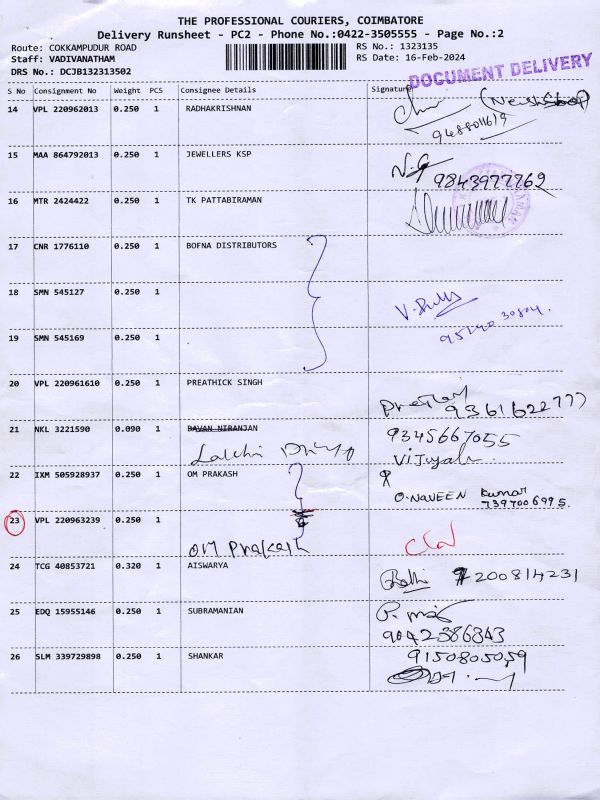 THE PROFESSIONAL COURIERS, COIMBATORE
Delivery Runsheet - PC2 - Phone No.:0422-3505555 - Page No.:2
Route: COKKAMPUDUR ROAD RS No.: 1323135
Staff: VADIVANATHAM RS Date: 16-Feb-2024
DRS No.: DCJB132313502 DOCUMENT DELIVERY
S No Consignment No Weight PCS Consignee Details Signature
14 VPL 220962013 0.250 1 RADHAKRISHNAN
9488011619
15 MAA 864792013 0.250 1 JEWELLERS KSP
9843977769
16 MTR 2424422 0.250 1 TK PATTABIRAMAN
17 CNR 1776110 0.250 1 BOFNA DISTRIBUTORS
18 SMN 545127 0.250 1
19 SMN 545169 0.250 1
20 VPL 220961610 0.250 1 PREATHICK SINGH
9361622777
21 NKL 3221590 0.090 1 BAVAN NIRANJAN 9345667055
Vijayala
22 IXM 505928937 0.250 1 OM PRAKASH
O.NAVEEN Kumar
7397006995
23 VPL 220963239 0.250 1
OM Prakash
24 TCG 40853721 0.320 1 AISWARYA
7200814231
25 EDQ 15955146 0.250 1 SUBRAMANIAN
9042386343
26 SLM 339729898 0.250 1 SHANKAR 9150805059